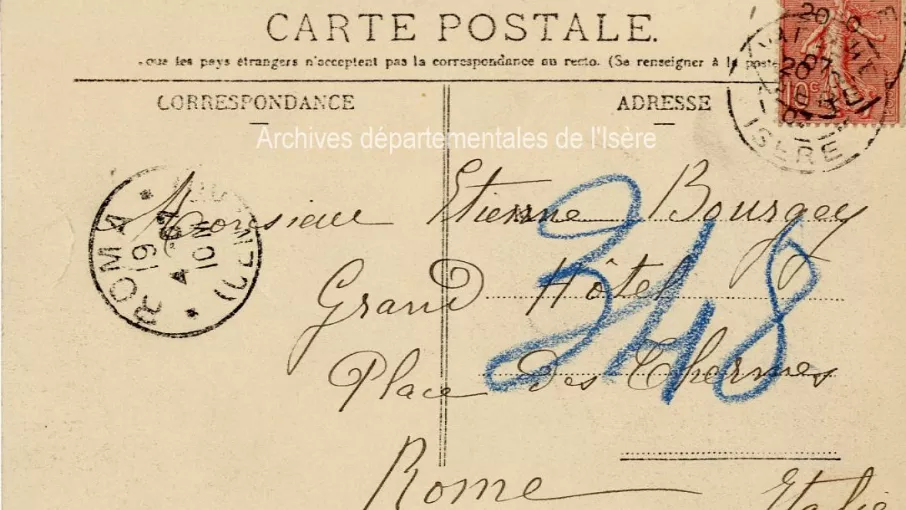 CARTE POSTALE.
ous les pays étrangers n'acceptent pas la correspondance au recto. (Se renseigner à la poste
CORRESPONDANCE
ADRESSE
Archives départementales de l'Isère
Monsieur Etienne Bourgey
Grand Hôtel
Place des Thermes
Rome Italie
348
ROMA
19
10M
10c
20
ISÈRE